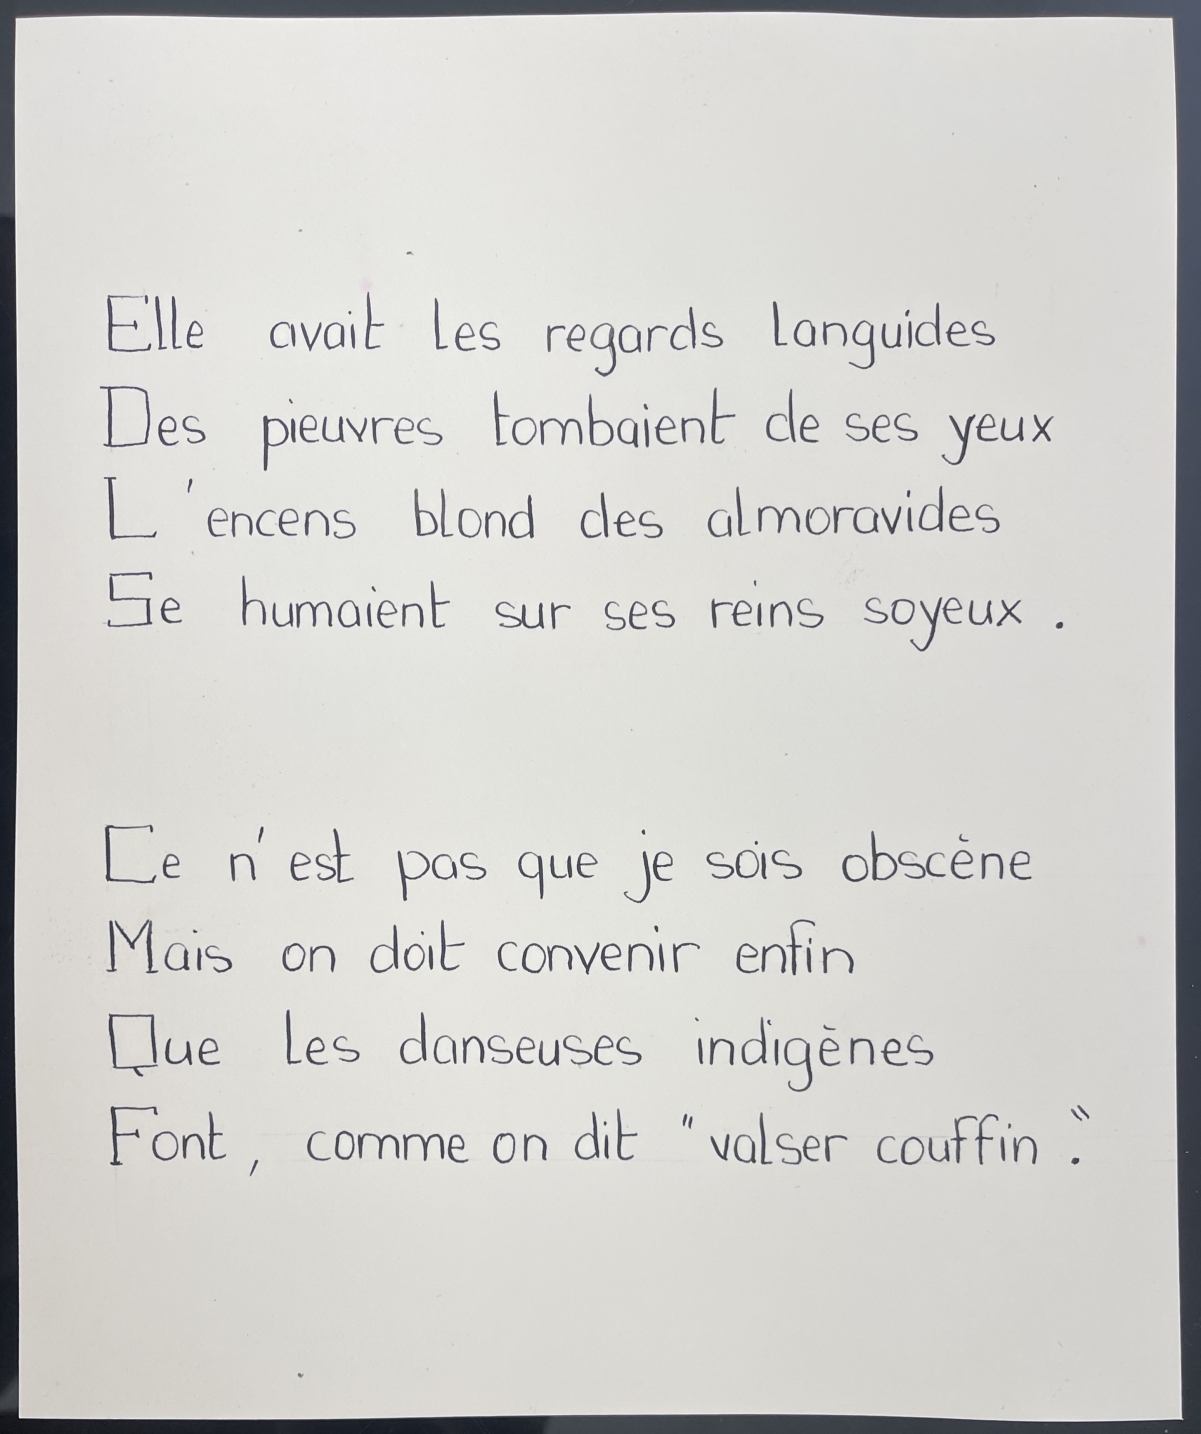 Elle avait les regards languides
Des pieuvres tombaient de ses yeux
L'encens blond des almoravides
Se humaient sur ses reins soyeux.
Ce n'est pas que je sois obscène
Mais on doit convenir enfin
Que les danseuses indigènes
Font, comme on dit "valser couffin".